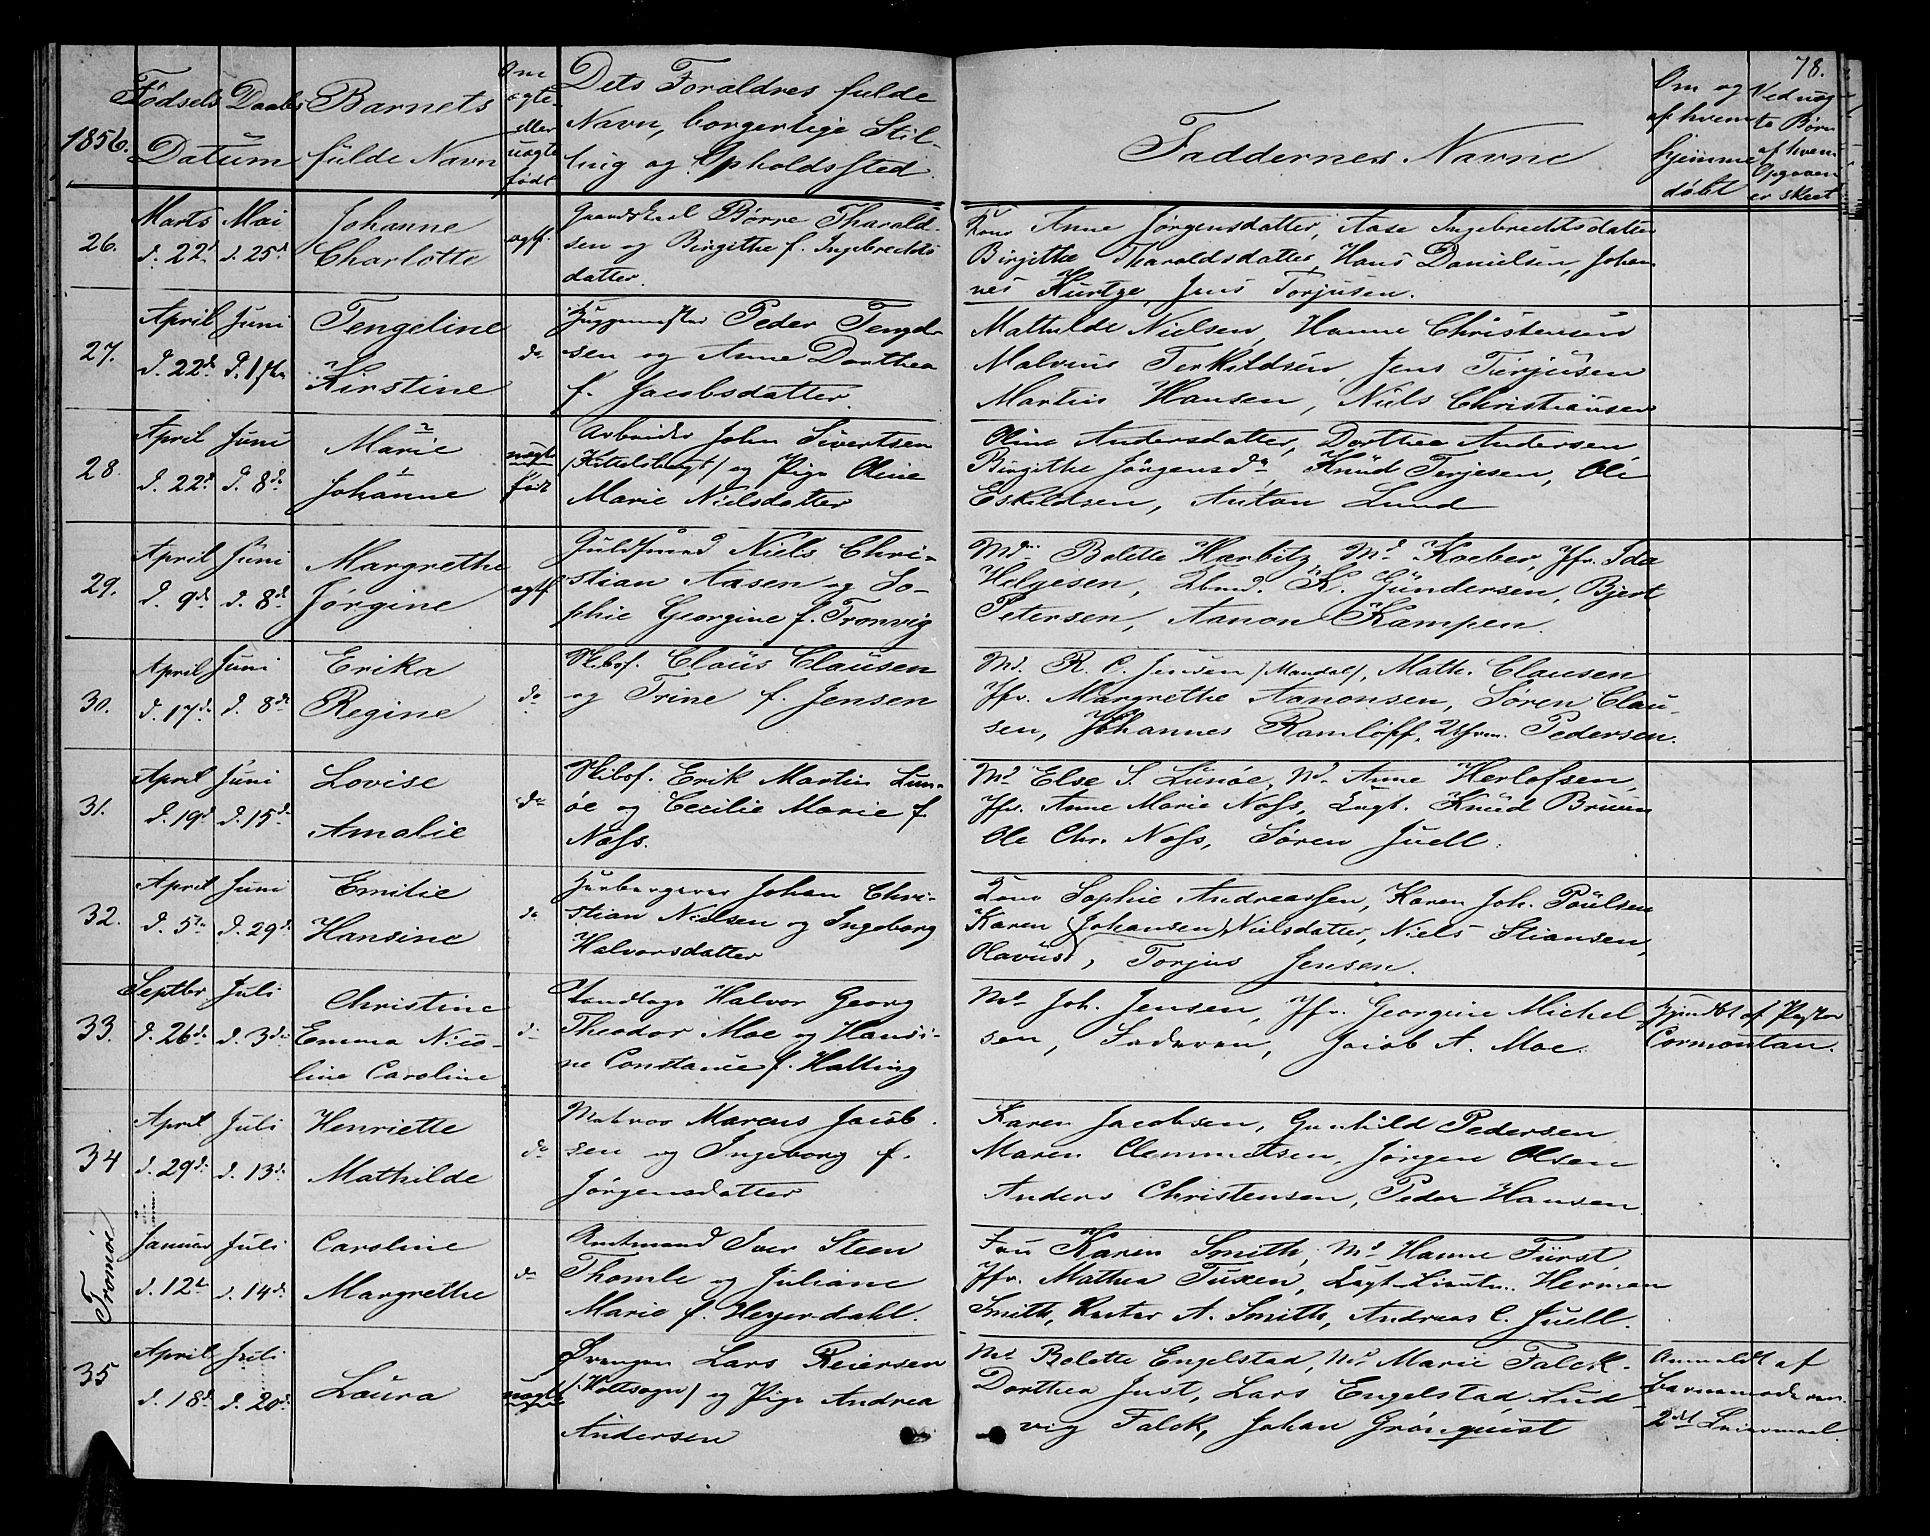 78.
1856.
Fødsels Daabs
Datum
Barnets
fulde Navn
Om
ægte
eller
uægte
født
Dets Forældres fulde
Navn, borgerlige Stil-
ling og Opholdssted.
Faddernes Navne
Om og
af hvem
hjemme
døbt
Ved uæg-
te Børn
af hvem
Opgaven
er skeet
26.
Marts Mai
d. 22d d. 25d
Johanne
Charlotte
ægtf.
Børre Tharald-
sen og Birgithe f. Ingebregts
datter.
Kone Anne Jørgensdatter, Aase Ingebrechtsdatter
Birgithe Tharaldsdatter, Hans Danielsen, Johan
nes Kurtze, Jens Torjusen.
27.
April Juni
d. 22d d. 1ste
Tengeline
Kirstine
do
Peder Tengels
sen og Anne Dorthea
f. Jacobsdatter.
Mathilde Nielsen, Hanne Christensen
Malvine Terkildsen, Jens Terjusen
Martin Hansen, Niels Christiansen
28.
April Juni
d. 22d d. 8de
2 Marie
1 Johanne
uægte
født
Arbeider John Sivertsen
/Kittelsbugt/ og Pige Oline
Marie Nielsdatter
Oline Andersdatter, Dorthea Andersen
Birgithe Jørgensdr Knud Terjesen, Ole
Eskildsen, Anton Lund
29.
April Juni
d. 9de d. 8de
Margrethe
Jørgine
ægtf
Guldsmed Niels Chri-
stian Aasen og So-
phie Georgine f. Tronvig
Md. Bolette Hærbitz, Md Koeber, Jfr. Ida
Helgesen, K. Gundersen, Bjert
Petersen, Aanon Kampen.
30.
April Juni
d. 17de d. 8de
Erika
Regine
do
Skibsf. Claus Clausen
og Trine f. Jensen
Md. R. C. Jensen /Mandal/, Math. Clausen
Jfr. Margrethe Aanonsen, Søren Clau-
sen, Johannes Ramløff, Pedersen.
31.
April Juni
d. 19d d. 15de
Lovise
Amalie
do
Skibsf. Erik Martin Lun-
øe og Cecilie Marie f
Næss.
Md Else S. Lunøe, Md. Anne Herlofsen,
Jfr. Anne Marie Næss, Knud Bruun
Ole Chr. Næss, Søren Juell.
32.
April Juni
d. 5te d. 29de
Emilie
Hansine
do
Johan Chri-
stian Nielsen og Ingeborg
Halvorsdatter
Kone Sophie Andreassen, Karen Joh. Paulsen
Karen (Johansen) Nielsdatter, Niels Stiansen,
Olavus, Torjus Jensen.
33.
Septbr Juli
d. 26de d. 3die
Christine
Emma Nico-
line Caroline
do
Tandlæge Halvor Georg
Theodor Moe og Hansi-
ne Constance f. Halling
Md Joh. Jensen, Jfr. Georgine Michel
sen, Faderen, Jacob A. Moe.
Hjemdøbt af Pastor
Cormontan.
34
April Juli
d. 29de d. 13de
Henriette
Mathilde
do
Matros Marcus Jacob
sen og Ingeborg f.
Jørgensdatter
Karen Jacobsen, Gunhild Pedersen
Maren Clemmetsen, Jørgen Olsen
Anders Christensen, Peder Hansen
Tromøe
Januar Juli
d. 12te d. 14de
Caroline
Margrethe
do
Amtmand Iver Steen
Thomle og Juliane
Marie f. Heyerdahl.
Fru Karen Smith, Md Hanne Fürst,
Jfr. Mathea Tuxen, Herman
Smith, A. Smith, Andreas C. Juell.
35
April Juli
d. 18de d. 20de
Laura
uægte
Lars Reiersen
/Holtsogn/ og Pige Andrea
Andersen
Md Bolette Engelstad, Md Marie Falck-
Dorthea Just, Lars Engelstad Lud-
vig Falck, Johan Grönquist
Anmeldt af
Barnemoderen
2det Leiermaal.